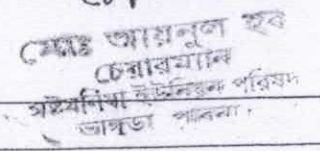 মোঃ আয়নুল হক
চেয়ারম্যান
ইউনিয়ন পরিষদ
ভাঙ্গুড়া পাবনা।